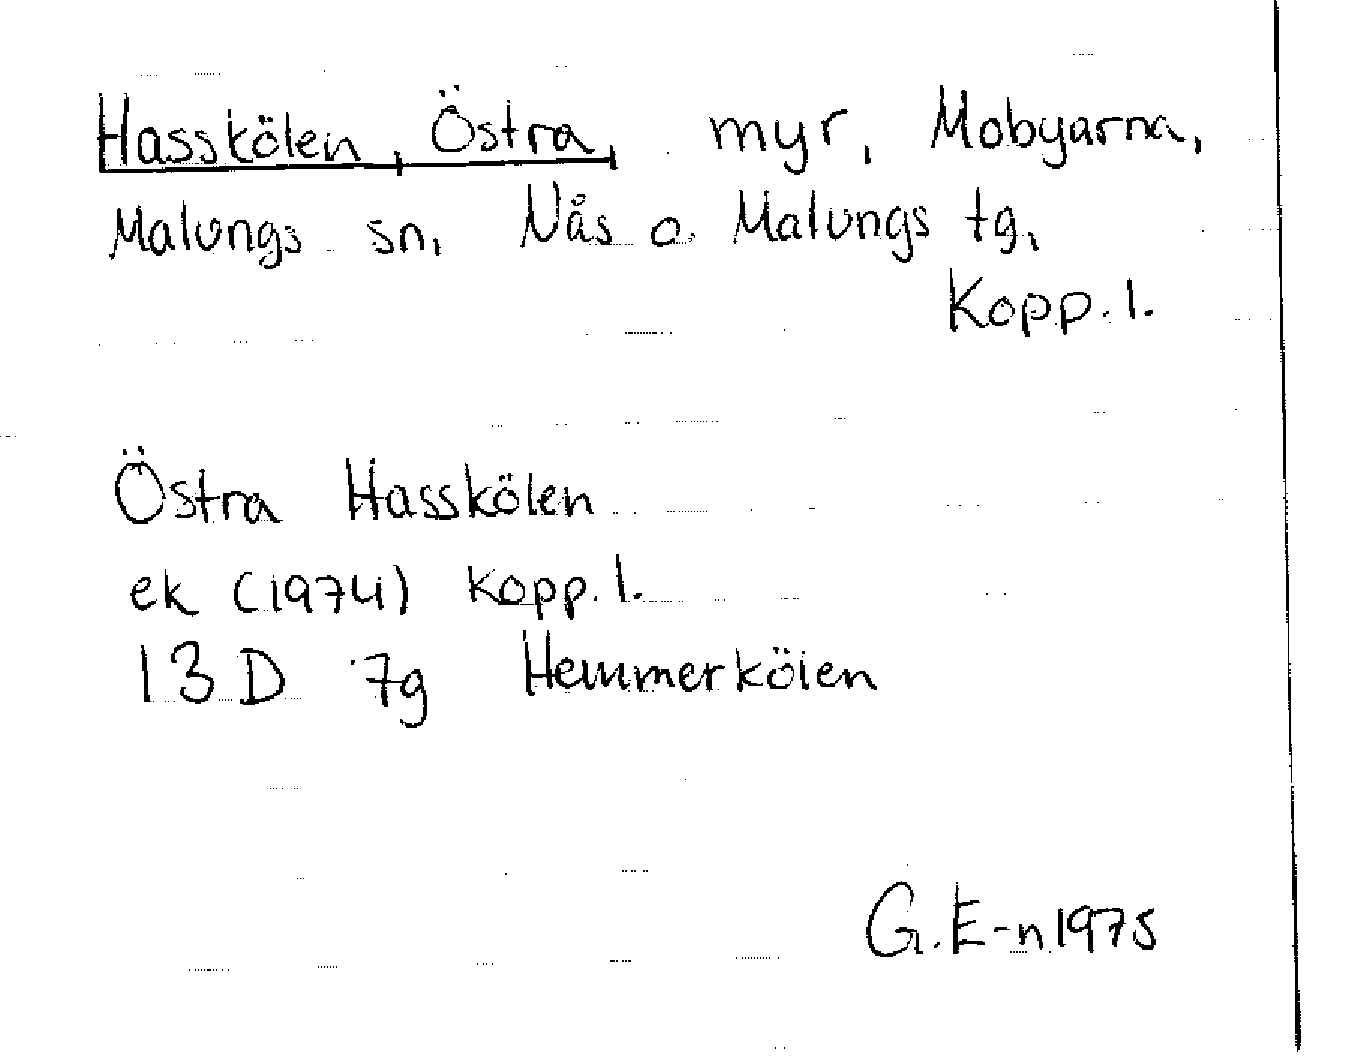 Hasskölen, Östra, myr, Mobyarna,
Malungs sn, Nås o. Malungs tg,
Kopp. l.
Östra Hasskölen
ek (1974) Kopp. l.
13 D 7g Hemmerkölen
G. E-n 1975